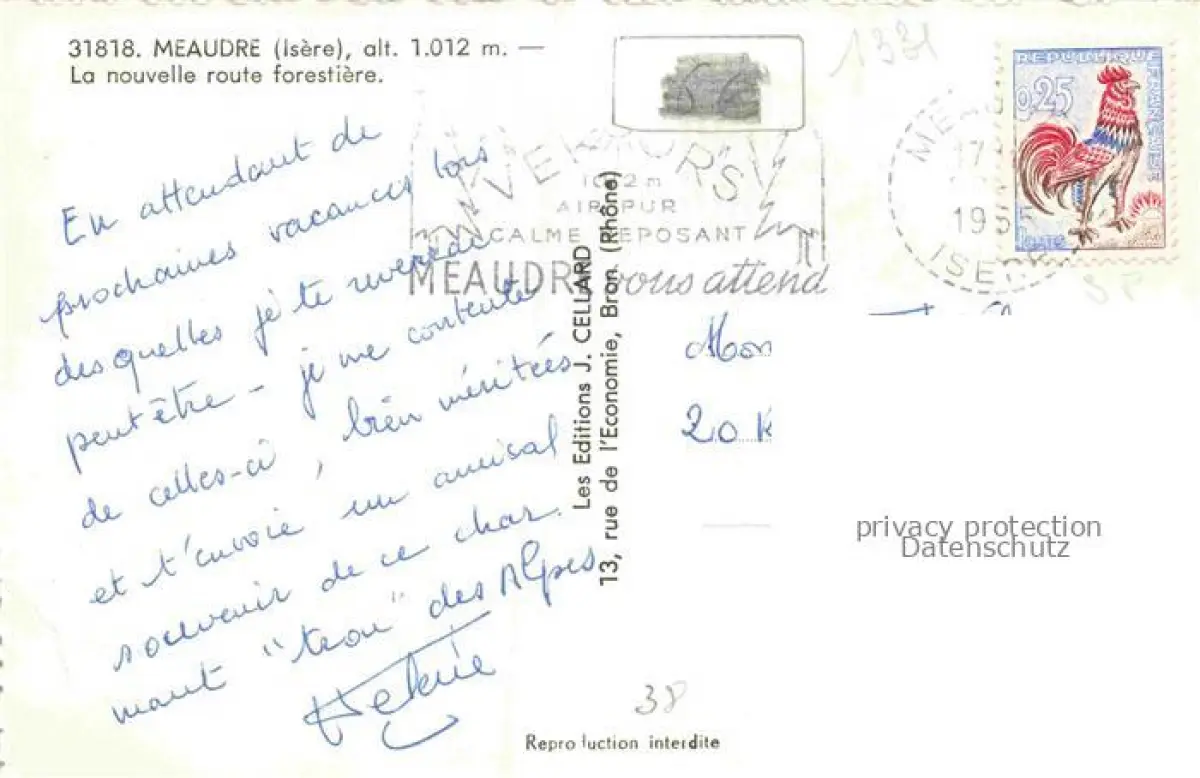 31818. MEAUDRE (Isère), alt. 1.012 m. —
La nouvelle route forestière.
En attendant de
prochaines vacances lors
des quelles je te reverrai
peut être - je me contente
de celles-ci, bien méritées
et t'envoie un amical
souvenir de ce char.
mant "trou" des Alpes
VERCORS
1012 m
AIR PUR
CALME REPOSANT
MEAUDRE vous attend
Les Editions J. CELLARD
13, rue de l'Economie, Bron (Rhône)
1331
REPUBLIQUE FRANCAISE
0,25
ISERE
Mon
20 K
privacy protection
Datenschutz
38
Reproduction interdite